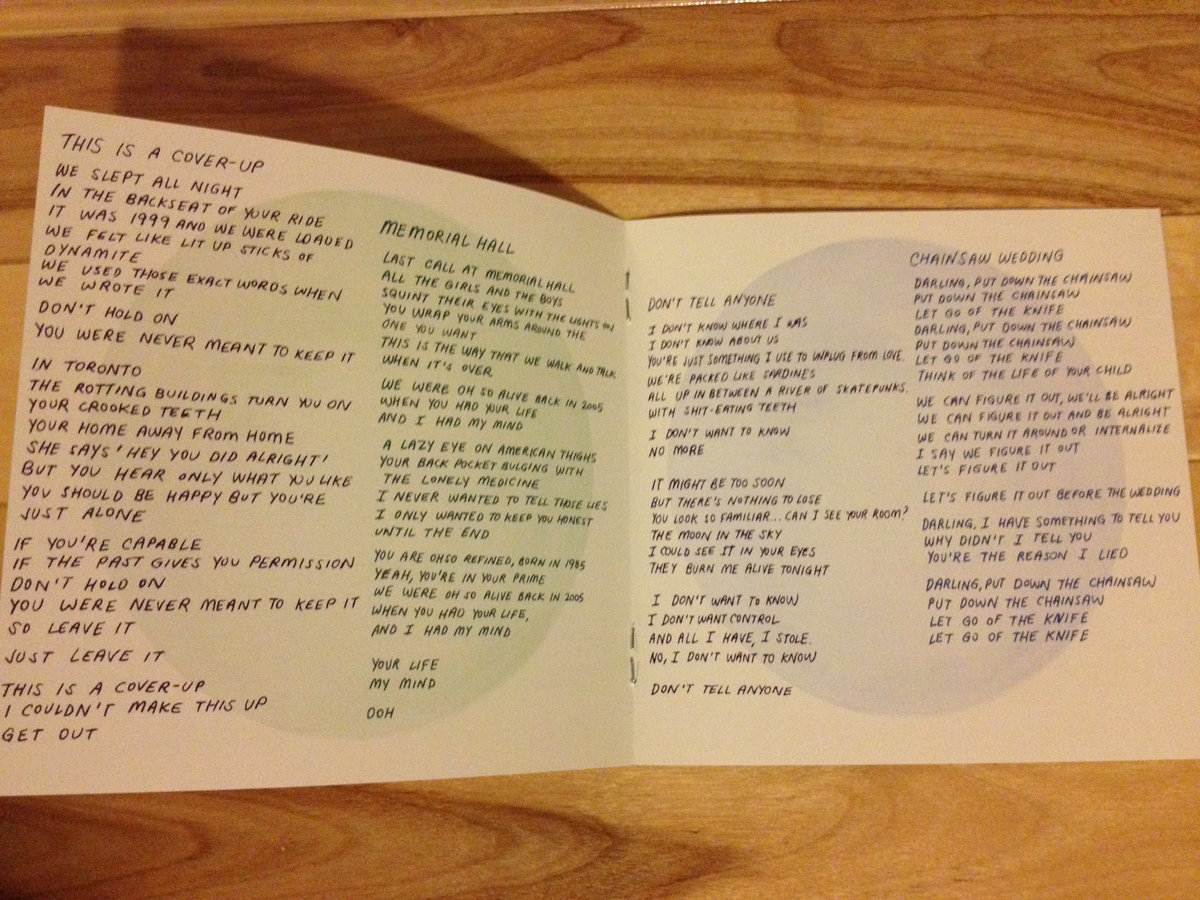 THIS IS A COVER-UP
WE SLEPT ALL NIGHT
IN THE BACKSEAT OF YOUR RIDE
IT WAS 1999 AND WE WERE LOADED
WE FELT LIKE LIT UP STICKS OF
DYNAMITE
WE USED THOSE EXACT WORDS WHEN
WE WROTE IT
DON'T HOLD ON
YOU WERE NEVER MEANT TO KEEP IT
IN TORONTO
THE ROTTING BUILDINGS TURN YOU ON
YOUR CROOKED TEETH
YOUR HOME AWAY FROM HOME
SHE SAYS 'HEY YOU DID ALRIGHT'
BUT YOU HEAR ONLY WHAT YOU LIKE
YOU SHOULD BE HAPPY BUT YOU'RE
JUST ALONE
IF YOU'RE CAPABLE
IF THE PAST GIVES YOU PERMISSION
DON'T HOLD ON
YOU WERE NEVER MEANT TO KEEP IT
SO LEAVE IT
JUST LEAVE IT
THIS IS A COVER-UP
I COULDN'T MAKE THIS UP
GET OUT
MEMORIAL HALL
LAST CALL AT MEMORIAL HALL
ALL THE GIRLS AND THE BOYS
SQUINT THEIR EYES WITH THE LIGHTS ON
YOU WRAP YOUR ARMS AROUND THE
ONE YOU WANT
THIS IS THE WAY THAT WE WALK AND TALK
WHEN IT'S OVER
WE WERE OH SO ALIVE BACK IN 2005
WHEN YOU HAD YOUR LIFE
AND I HAD MY MIND
A LAZY EYE ON AMERICAN THIGHS
YOUR BACK POCKET BULGING WITH
THE LONELY MEDICINE
I NEVER WANTED TO TELL THOSE LIES
I ONLY WANTED TO KEEP YOU HONEST
UNTIL THE END
YOU ARE OH SO REFINED, BORN IN 1985
YEAH, YOU'RE IN YOUR PRIME
WE WERE OH SO ALIVE BACK IN 2005
WHEN YOU HAD YOUR LIFE,
AND I HAD MY MIND
YOUR LIFE
MY MIND
OOH
DON'T TELL ANYONE
I DON'T KNOW WHERE I WAS
I DON'T KNOW ABOUT US
YOU'RE JUST SOMETHING I USE TO UNPLUG FROM LOVE.
WE'RE PACKED LIKE SARDINES
ALL UP IN BETWEEN A RIVER OF SKATEPUNKS.
WITH SHIT-EATING TEETH
I DON'T WANT TO KNOW
NO MORE
IT MIGHT BE TOO SOON
BUT THERE'S NOTHING TO LOSE
YOU LOOK SO FAMILIAR... CAN I SEE YOUR ROOM?
THE MOON IN THE SKY
I COULD SEE IT IN YOUR EYES
THEY BURN ME ALIVE TONIGHT
I DON'T WANT TO KNOW
I DON'T WANT CONTROL
AND ALL I HAVE, I STOLE.
NO, I DON'T WANT TO KNOW
DON'T TELL ANYONE
CHAINSAW WEDDING
DARLING, PUT DOWN THE CHAINSAW
PUT DOWN THE CHAINSAW
LET GO OF THE KNIFE
DARLING, PUT DOWN THE CHAINSAW
PUT DOWN THE CHAINSAW
LET GO OF THE KNIFE
THINK OF THE LIFE OF YOUR CHILD
WE CAN FIGURE IT OUT, WE'LL BE ALRIGHT
WE CAN FIGURE IT OUT AND BE ALRIGHT
WE CAN TURN IT AROUND OR INTERNALIZE
I SAY WE FIGURE IT OUT
LET'S FIGURE IT OUT
LET'S FIGURE IT OUT BEFORE THE WEDDING
DARLING, I HAVE SOMETHING TO TELL YOU
WHY DIDN'T I TELL YOU
YOU'RE THE REASON I LIED
DARLING, PUT DOWN THE CHAINSAW
PUT DOWN THE CHAINSAW
LET GO OF THE KNIFE
LET GO OF THE KNIFE